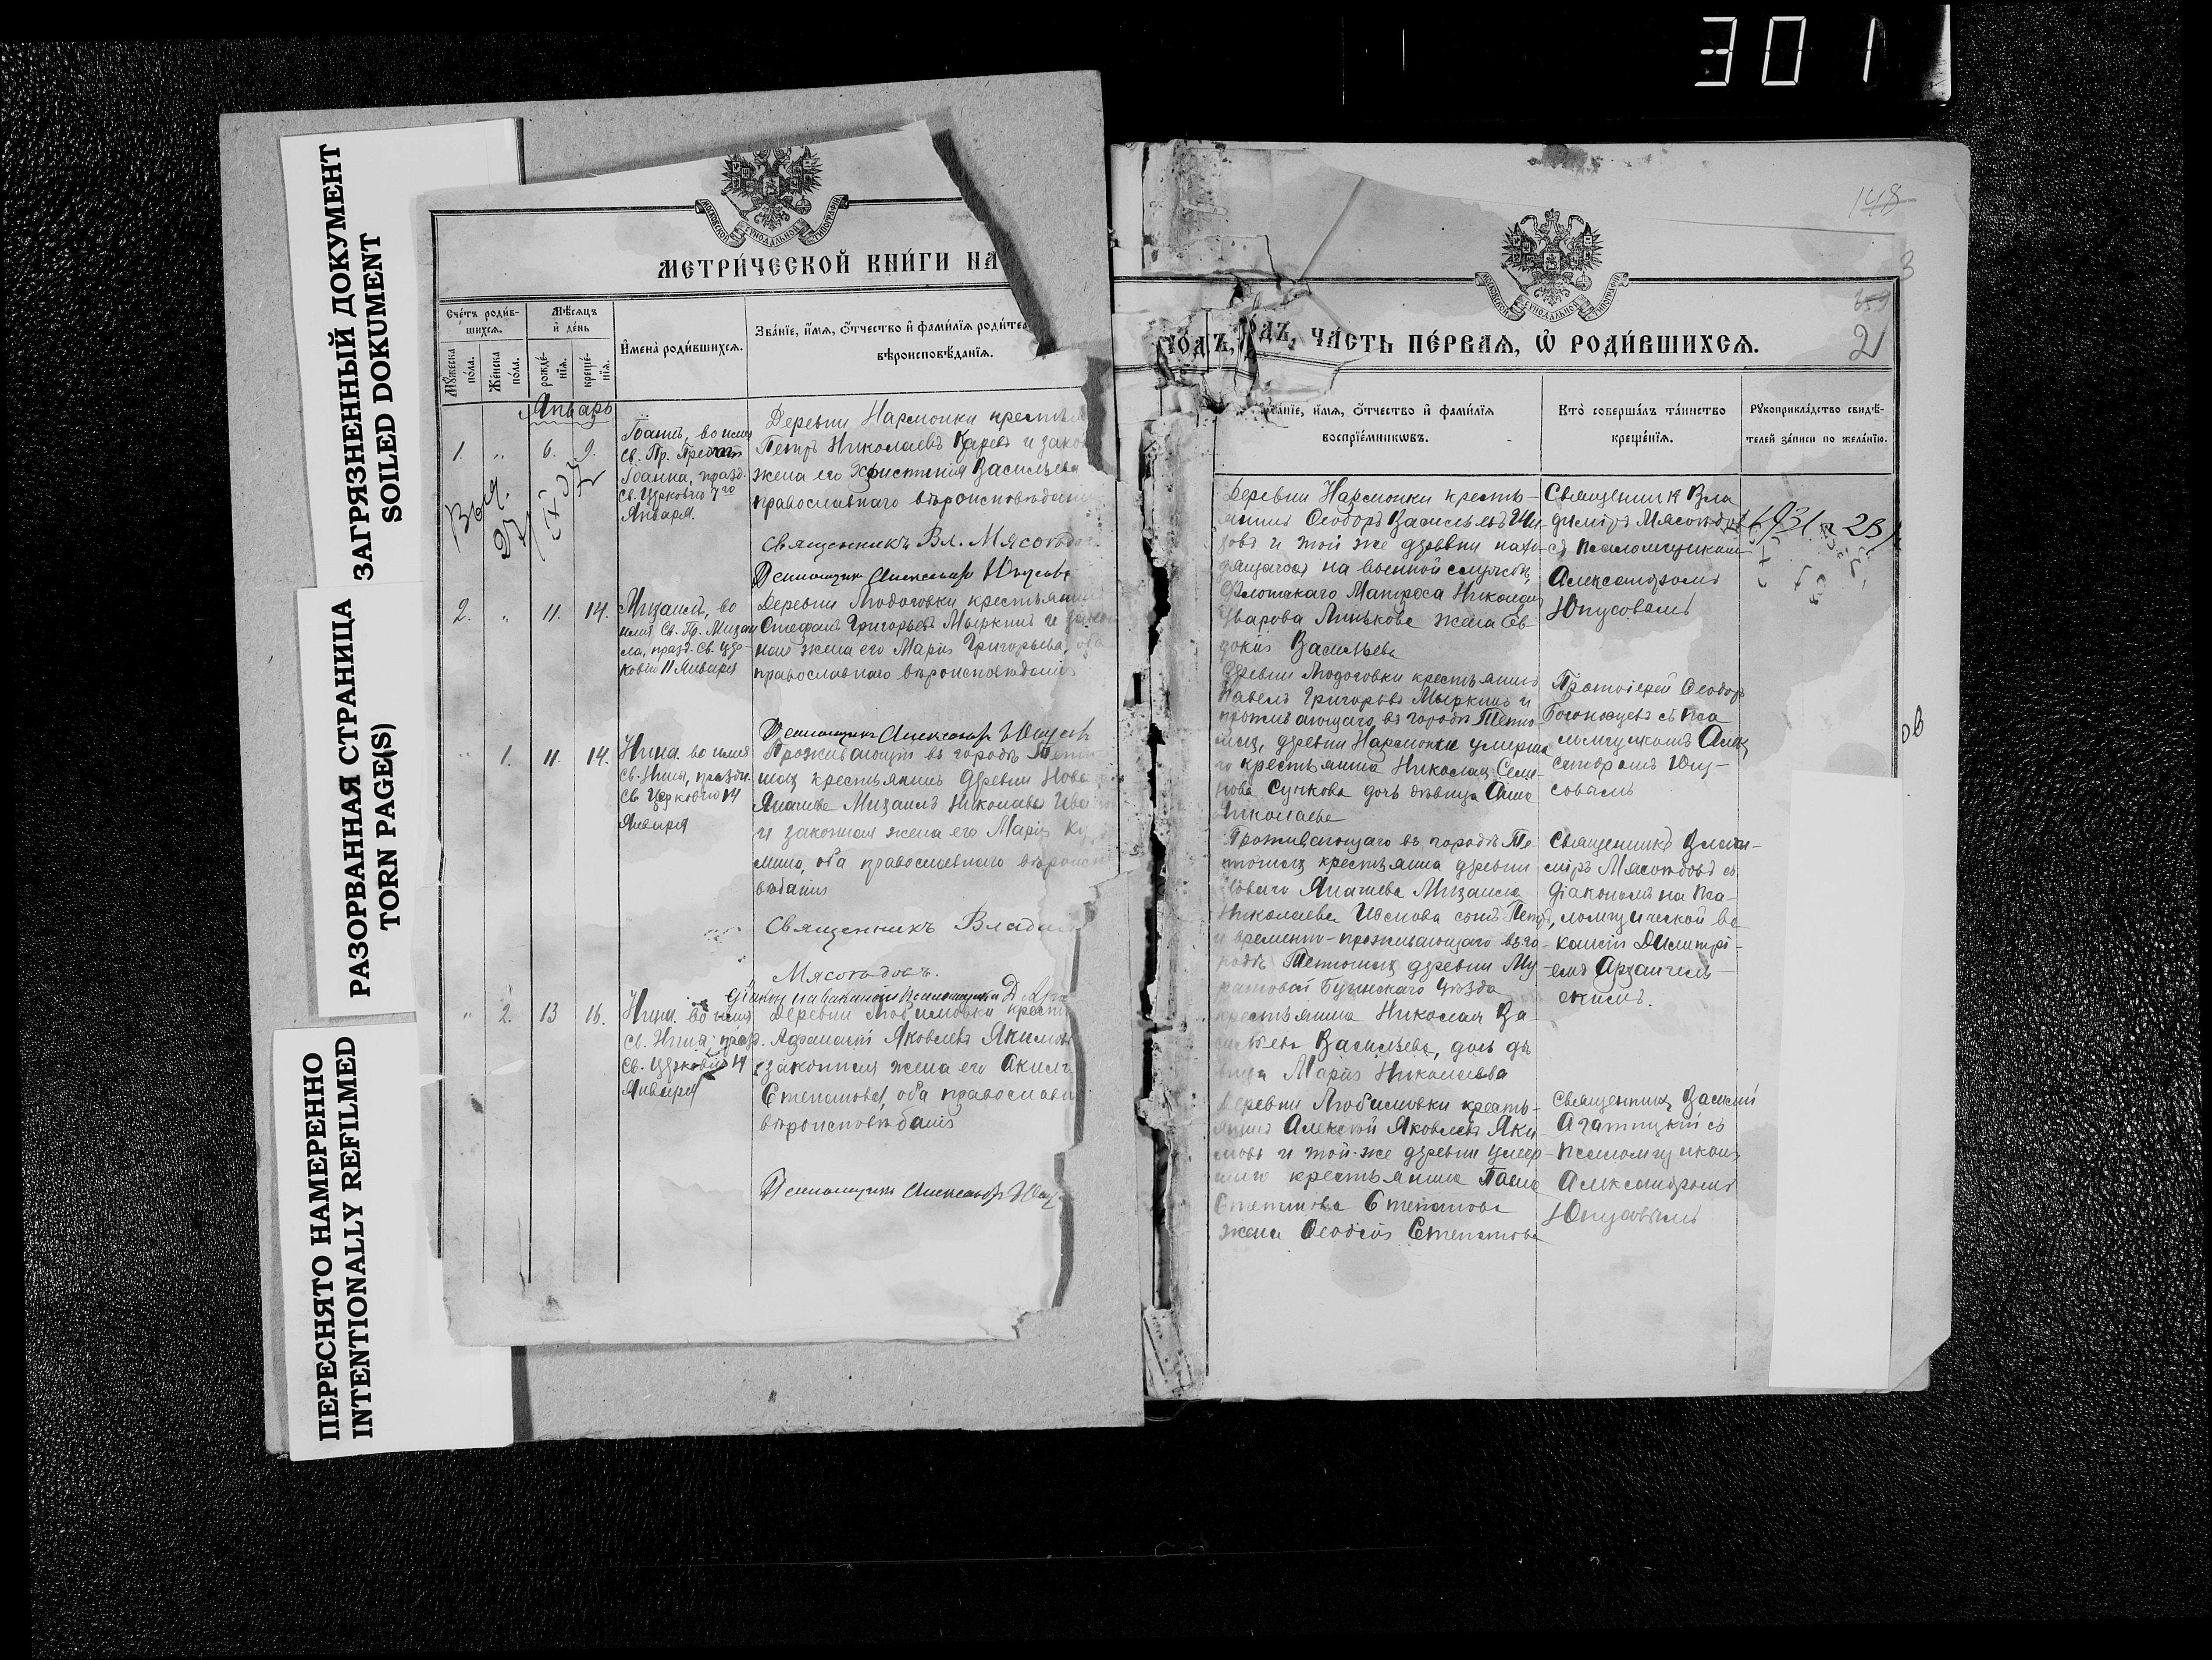 301
ЗАГРЯЗНЕННЫЙ ДОКУМЕНТ
SOILED DOKUMENT
РАЗОРВАННАЯ СТРАНИЦА
TORN PAGE(S)
ПЕРЕСНЯТО НАМЕРЕННО
INTENTIONALLY REFILMED
МОСКОВСКОЙ СѴНОДАЛЬНОЙ ТИПОГРАФІИ
МЕТРИ́ЧЕСКОЙ КНИ́ГИ НА
Сче́тъ роди́в-
шихсѧ.
Мѣ́сѧцъ
и҆ де́нь
И҆мена̀ роди́вшихсѧ.
Зва́нїе, и҆́мѧ, ѻ҆́тчество и҆ фами́лїѧ роди́те
вѣроисповѣ́данїѧ.
Мꙋ́жеска
по́ла.
Же́нска
по́ла.
рожде́-
нїѧ.
креще́-
нїѧ.
Январь
1. „ 6. 9.
Іоаннъ, во имя
Св. Пр. Предт.
Іоанна, празд.
Св. Церковію 7го
Января.
Деревни Нармонки крестья
Петръ Николаевъ Царевъ и зако
жена его Христина Васильева
православнаго вѣроисповѣдан
Священникъ Вл. Мясоѣдов
Псаломщикъ Александръ Юнусовъ
2. „ 11. 14.
Михаилъ, во
имя Св. Пр. Михаи
ла, празд. Св. Цер-
ковію 11 Января
Деревни Людоговки крестьянин
Стефанъ Григорьевъ Мыркинъ и закон
ная жена его Марія Григорьева, оба
православнаго вѣроисповѣданія
Псаломщикъ Александръ Юнусовъ
„ 1. 11. 14.
Нина. во имя
Св. Нины, праздн.
Св Церковію 14
Января
Проживающіе въ городѣ Тетю
шахъ крестьянинъ деревни Ново
Аначева Михаилъ Николаевъ Ива
и законная жена его Марія Ку
мина, оба православнаго вѣроиспо
вѣданія
Священникъ Влади
Мясоѣдовъ.
Діаконъ на вакансіи псаломщика Д Арх
„ 2. 13 16.
Нина. во имя
Св. Нины, празд.
Св. Церковію 14
Января
Деревни Любимовки крест
Афанасій Яковлевъ Якимовъ
и законная жена его Акили
Степанова, оба православн
вѣроисповѣданія
Псаломщикъ Александръ Юну
148
МОСКОВСКОЙ СѴНОДАЛЬНОЙ ТИПОГРАФІИ
3
21
ГО́ДЪ, ЧА́СТЬ ПЕ́РВАѦ, Ѡ҆ РОДИ́ВШИХСѦ.
анїе, и҆́мѧ, ѻ҆́тчество и҆ фами́лїѧ
воспрїе́мникѡвъ.
Кто̀ соверша́лъ та́инство
креще́нїѧ.
Рꙋкоприкла́дство свидѣ́-
телей за́писи по жела́нїю.
Деревни Нармонки кресть-
янинъ Ѳеодоръ Васильевъ
и той же деревни нахо-
дящагося на военной службѣ,
Флотскаго Матроса Николая
Уварова Линькова жена Ев-
докія Васильева
Священникъ Вла
диміръ Мясоѣдовъ
съ псаломщикомъ
Александромъ
Юнусовымъ
Деревни Людоговки крестьянинъ
Павелъ Григорьевъ Мыркинъ и
проживающаго въ городѣ Тетю-
шахъ, деревни Нармонки умерша
го крестьянина Николая Семе-
нова Сучкова дочь дѣвица Анна
Николаева
Протоіерей Ѳеодоръ
Богоносцевъ съ пса
ломщикомъ Алек
сандромъ Юну-
совымъ
Проживающаго въ городѣ Те-
тюшахъ крестьянина деревни
Новаго Аначева Михаила
Николаева сынъ Петръ,
и временно-проживающаго въ го-
родѣ Тетюшахъ деревни Му
ратовой Буинскаго уѣзда
крестьянина Николая Ва-
сильева Васильева, дочь дѣ
вица Марія Николаева
Священникъ Влади-
міръ Мясоѣдовъ съ
діакономъ на пса-
ломщической ва-
кансіи Димитрі-
емъ Архангель-
скимъ.
Деревни Любимовки кресть-
янинъ Алексѣй Яковлевъ Яки-
мовъ и той-же деревни умер-
шаго крестьянина Павла
Степанова Степанова
жена Ѳеодосія Степанова
Священникъ Василій
Агатицкій съ
псаломщикомъ
Александромъ
Юнусовымъ
ов